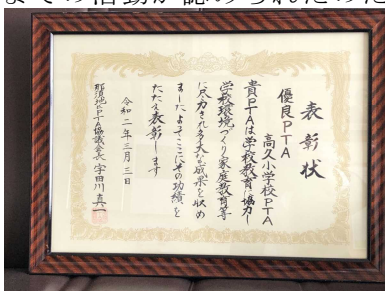 までの活動が認められたのだ
表彰状
優良PTA
高久小学校PTA
貴PTAは学校教育に協力し
学校環境づくり家庭教育等
に尽力され多大な成果を収め
ましたよってここにその功績を
たたえ表彰します
令和二年三月三日
那須地区PTA協議会長 宇田川真